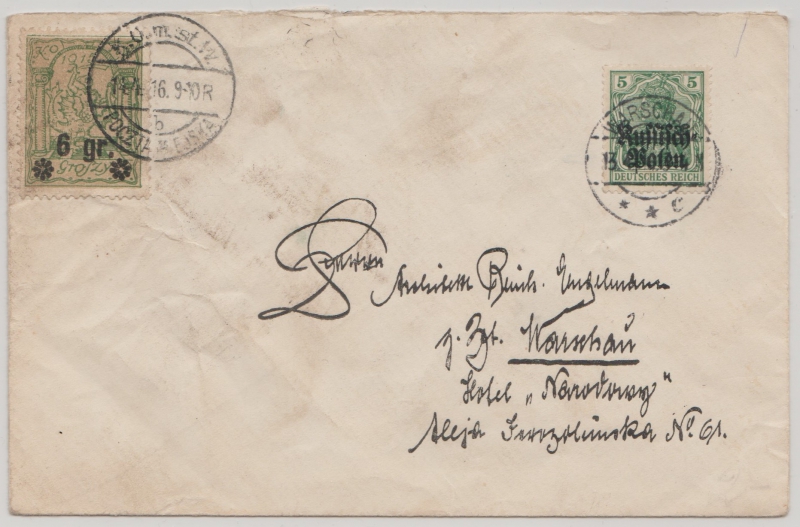 6 gr.
K.O.m.st.W.
16. 9-10R
b
POCZTA MIEJSKA
5 5
Russisch-
Polen
DEUTSCHES REICH
WARSCHAU
13.
* * c
Herrn
Architekt Reich. Engelmann
z. Zgt. Warschau
Hotel „Narodowy"
Aleja Jerozolimska No 61.